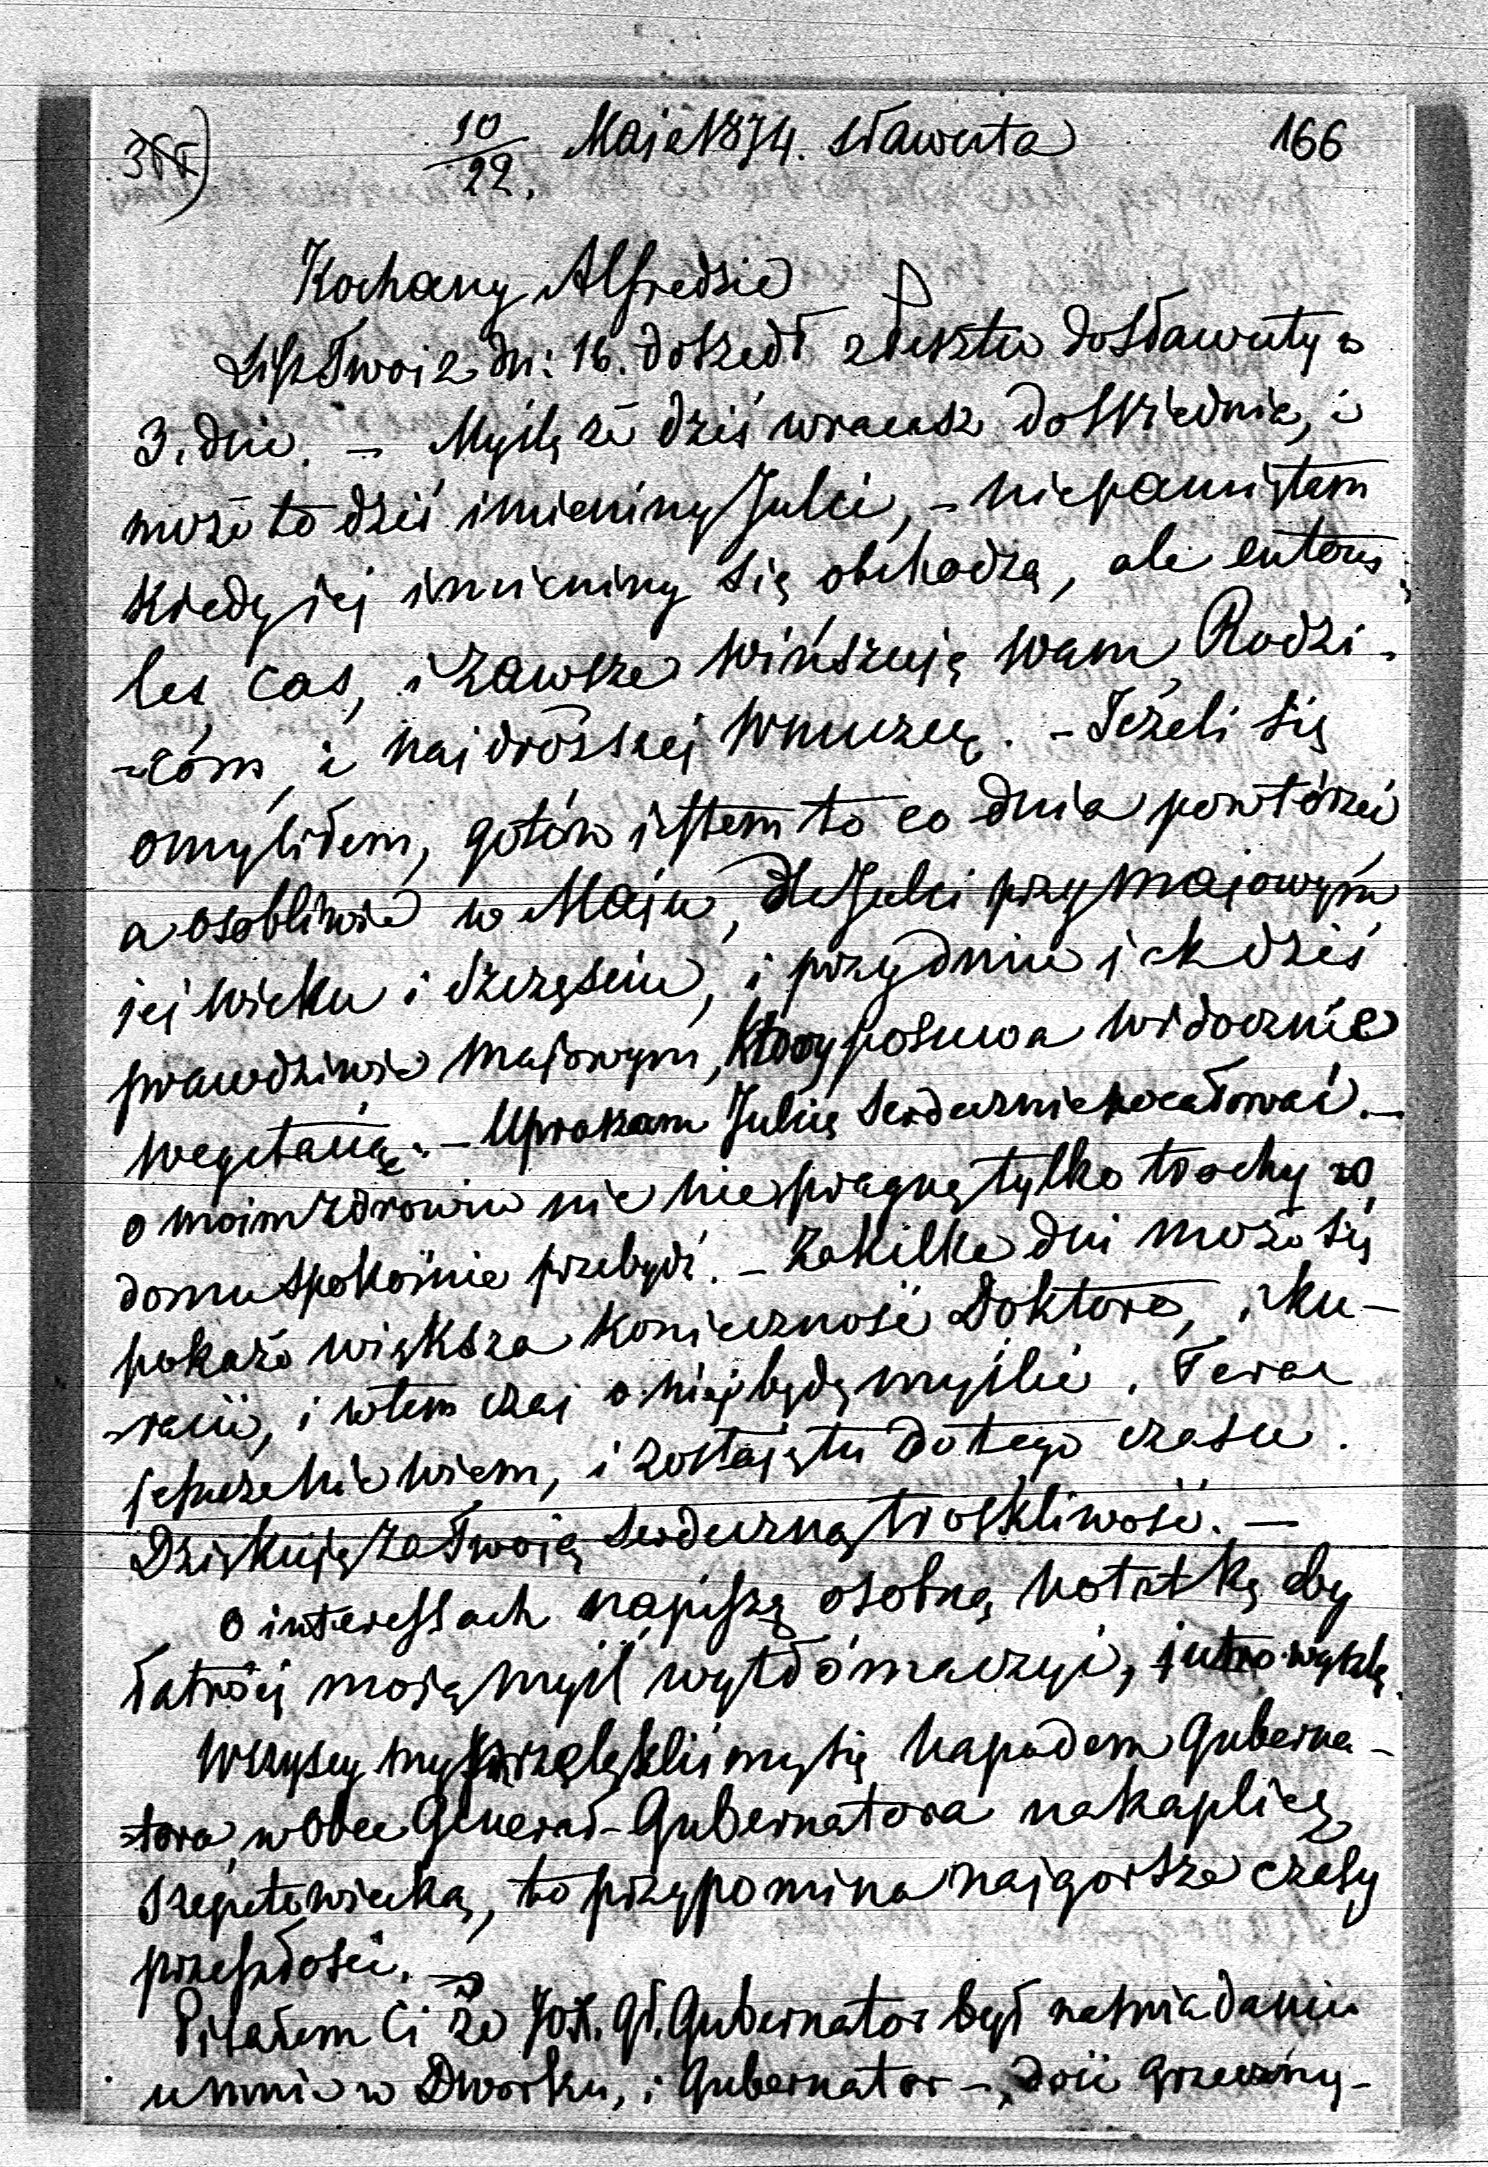 10/22. Maja 1874. Sławuta 166
Kochany Alfredzie
List Twoi z dn: 16. doszedł z Pesztu do Sławuty w
3. dni. – Myślę że dziś wracasz do Wiednia, i
może to dziś imieniny Julci, – niepamiętam
kiedy jej imieniny się obchodzą, ale en tous
les cas, i zawsze winszuję wam, Rodzi-
-com, i najdroższej Wnuczcę. – Jeżeli się
omyliłem, gotów jestem to co dnia powtórzeć
a osobliwie w Maju, dla Julci przy majowym
jej wieku i szczęściu, i przy dniu jak dziś
prawdziwie majowym, który posuwa widocznie
wegetacią. – Upraszam Julcię serdecznie pocałować. –
o moim zdrowiu nic nie pragnę tylko trochy w
domu spokoinie przebydź. – Za kilka dni może się
pokaże większa konieczność Doktora, i ku-
-racii, i w tem czas o niej będę myślić. Teraz
jeszcze nie wiem, i zostaję tu do tego czasu.
Dziękuję za Twoją serdeczną troskliwość. –
o interessach napiszę osobną notatkę aby
łatwiej moją myśl wytłómaczyć, jutro wyszlę.
Wszyscy my przelękliśmy się napadem Guberna-
-tora, w obec Generał-Gubernatora na kaplicę
Szepetowiecką, to przypomina najgorsze czasy
przeszłości. –
Pisałem Ci że Gł. Gubernator był na śniadaniu
u mnie w Dworku, i Gubernator –, dość grzeczny-